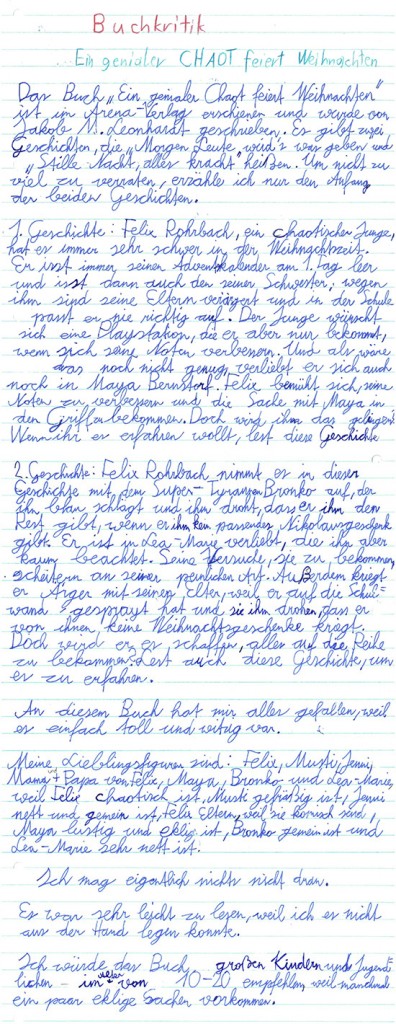 Buchkritik
Ein genialer CHAOT feiert Weihnachten
Das Buch „Ein genialer Chaot feiert Weihnachten"
ist im Arena-Verlag erschienen und wurde von
Jakob M. Leonhardt geschrieben. Es gibt zwei
Geschichten, die „Morgen Leute, wird's was geben und
„Stille Nacht, alles kracht" heißen. Um nicht zu
viel zu verraten, erzähle ich nur den Anfang
der beiden Geschichten.
1. Geschichte: Felix Rohrbach, ein chaotischer Junge,
hat es immer sehr schwer in der Weihnachtszeit.
Er isst immer seinen Adventskalender am 1. Tag leer
und isst dann auch den seiner Schwester, wegen
ihm sind seine Eltern verärgert und in der Schule
passt er nie richtig auf. Der Junge wünscht
sich eine Playstation, die er aber nur bekommt,
wenn sich seine Noten verbessern. Und als wäre
das noch nicht genug, verliebt er sich auch
noch in Maya Bernstorf. Felix bemüht sich, seine
Noten zu verbessern und die Sache mit Maya in
den Griff zu bekommen. Doch wird ihm das gelingen?
Wenn ihr es erfahren wollt, lest diese Geschichte
2. Geschichte: Felix Rohrbach nimmt es in dieser
Geschichte mit dem Super-Tyrannen Bronko auf, der
ihn blau schlägt und ihm droht, dass er ihm den
Rest gibt, wenn er ihm kein passendes Nikolausgeschenk
gibt. Er ist in Lea-Marie verliebt, die ihn aber
kaum beachtet. Seine Versuche, sie zu bekommen,
scheitern an seiner peinlichen Art. Außerdem kriegt
er Ärger mit seinen Elter, weil er auf die Schul-
wand gesprayt hat und sie ihm drohen, dass er
von ihnen keine Weihnachtsgeschenke kriegt.
Doch wird er es schaffen, alles auf die Reihe
zu bekommen? Lest auch diese Geschichte, um
es zu erfahren.
An diesem Buch hat mir alles gefallen, weil
es einfach toll und witzig war.
Meine Lieblingsfiguren sind: Felix, Musti, Jenni,
Mama und Papa von Felix, Maya, Bronko und Lea-Marie,
weil Felix chaotisch ist, Musti gefräßig ist, Jenni
nett und gemein ist, Felix Eltern, weil sie komisch sind,
Maya lustig und eklig ist, Bronko gemein ist und
Lea-Marie sehr nett ist.
Ich mag eigentlich nichts nicht dran.
Es war sehr leicht zu lesen, weil ich es nicht
aus der Hand legen konnte.
Ich würde das Buch großen Kindern und Jugend-
lichen - im Alter von 10-20 empfehlen, weil manchmal
ein paar eklige Sachen vorkommen.